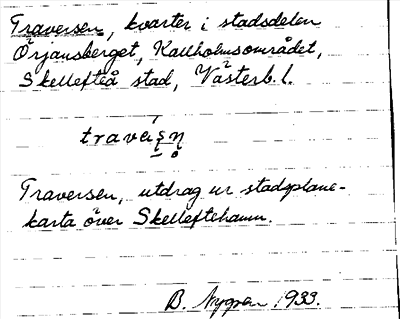 Traversen, kvarter i stadsdelen
Örjansberget, Kallholmsområdet,
Skellefteå stad, Västerb. l.
Traversen, utdrag ur stadsplane-
karta över Skelleftehamn.
B. Nygren 1933.